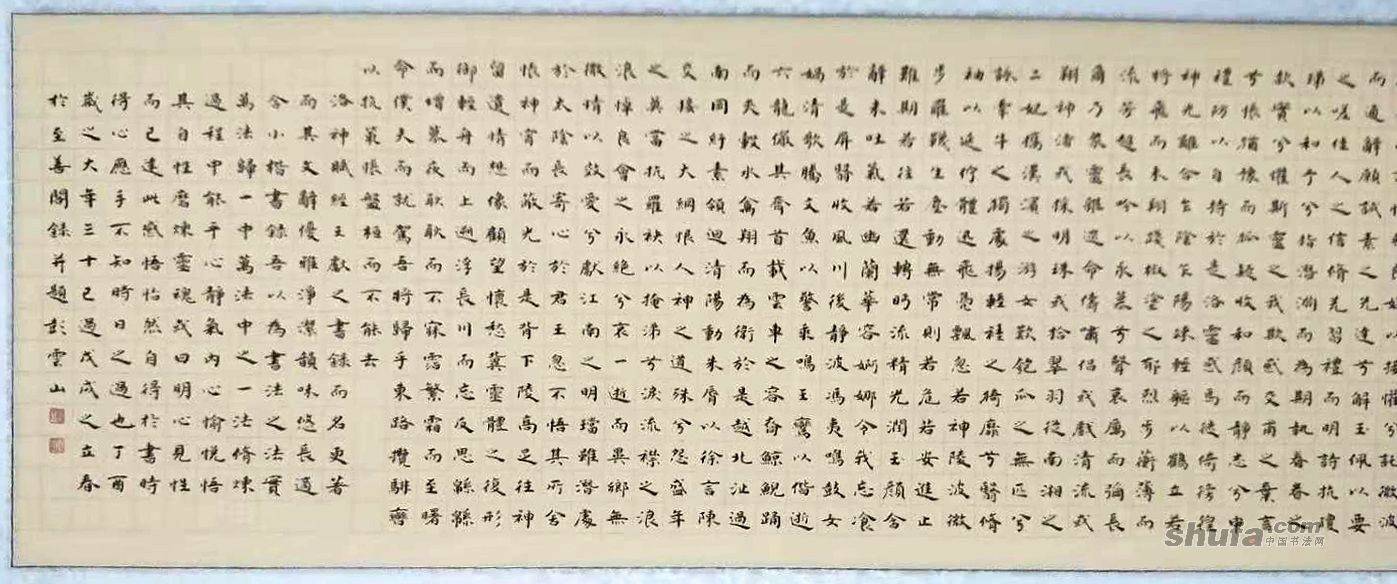 而通辭願誠素之先達兮解玉佩以要
之嗟佳人之信脩羌習禮而明詩抗瓊
珶以和予兮指潛淵而為期執眷眷之
款實兮懼斯靈之我欺感交甫之棄言
兮悵猶豫而狐疑收和顏而靜志兮申
禮防以自持於是洛靈感焉徙倚彷徨
神光離合乍陰乍陽竦輕軀以鶴立若
將飛而未翔踐椒塗之郁烈步蘅薄而
流芳超長吟以永慕兮聲哀厲而彌長
爾乃眾靈雜遝命儔嘯侶或戲清流或
翔神渚或採明珠或拾翠羽從南湘之
二妃攜漢濱之游女歎匏瓜之無匹兮
詠牽牛之獨處揚輕袿之猗靡兮翳脩
袖以延佇體迅飛鳧飄忽若神陵波微
步羅襪生塵動無常則若危若安進止
難期若往若還轉眄流精光潤玉顏含
辭未吐氣若幽蘭華容婀娜令我忘飡
於是屏翳收風川後靜波馮夷鳴鼓女
媧清歌騰文魚以警乘鳴玉鸞以偕逝
六龍儼其齊首載雲車之容裔鯨鯢踴
而夾轂水禽翔而為衛於是越北沚過
南岡紆素領迴清陽動朱脣以徐言陳
交接之大綱恨人神之道殊兮怨盛年
之莫當抗羅袂以掩涕兮淚流襟之浪
浪悼良會之永絕兮哀一逝而異鄉無
微情以效愛兮獻江南之明璫雖潛處
於太陰長寄心於君王忽不悟其所舍
悵神宵而蔽光於是背下陵高足往神
留遺情想像顧望懷愁冀靈體之復形
御輕舟而上遡浮長川而忘反思緜緜
而增慕夜耿耿而不寐霑繁霜而至曙
命僕夫而就駕吾將歸乎東路攬騑轡
以抗策悵盤桓而不能去
洛神賦經王獻之書錄而名更著
而其文辭優雅淨潔韻味悠長適
合小楷書錄吾以為書法之法實
萬法歸一中萬法中之一法脩煉
過程中能平心靜氣內心愉悅悟
具自性磨煉靈魂或曰明心見性
而已達此感悟怡然自得於書時
得心應手不知時日之過也丁酉
歲之大年三十已過戊戌之立春
於至善閣錄并題彭雲山
shufa.com
中国书法网